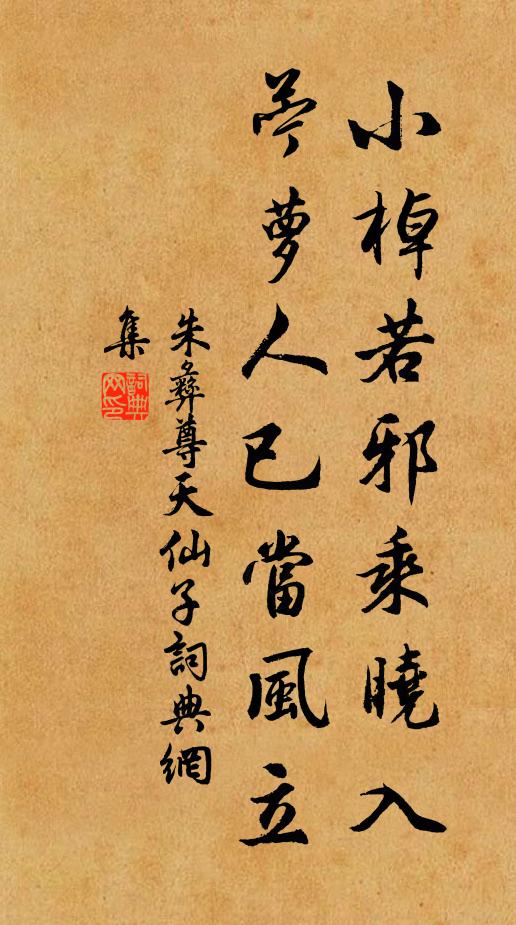 小棹若邪乘曉入
苎萝人已當風立
朱彝尊天仙子詞典網
集
詞典网印